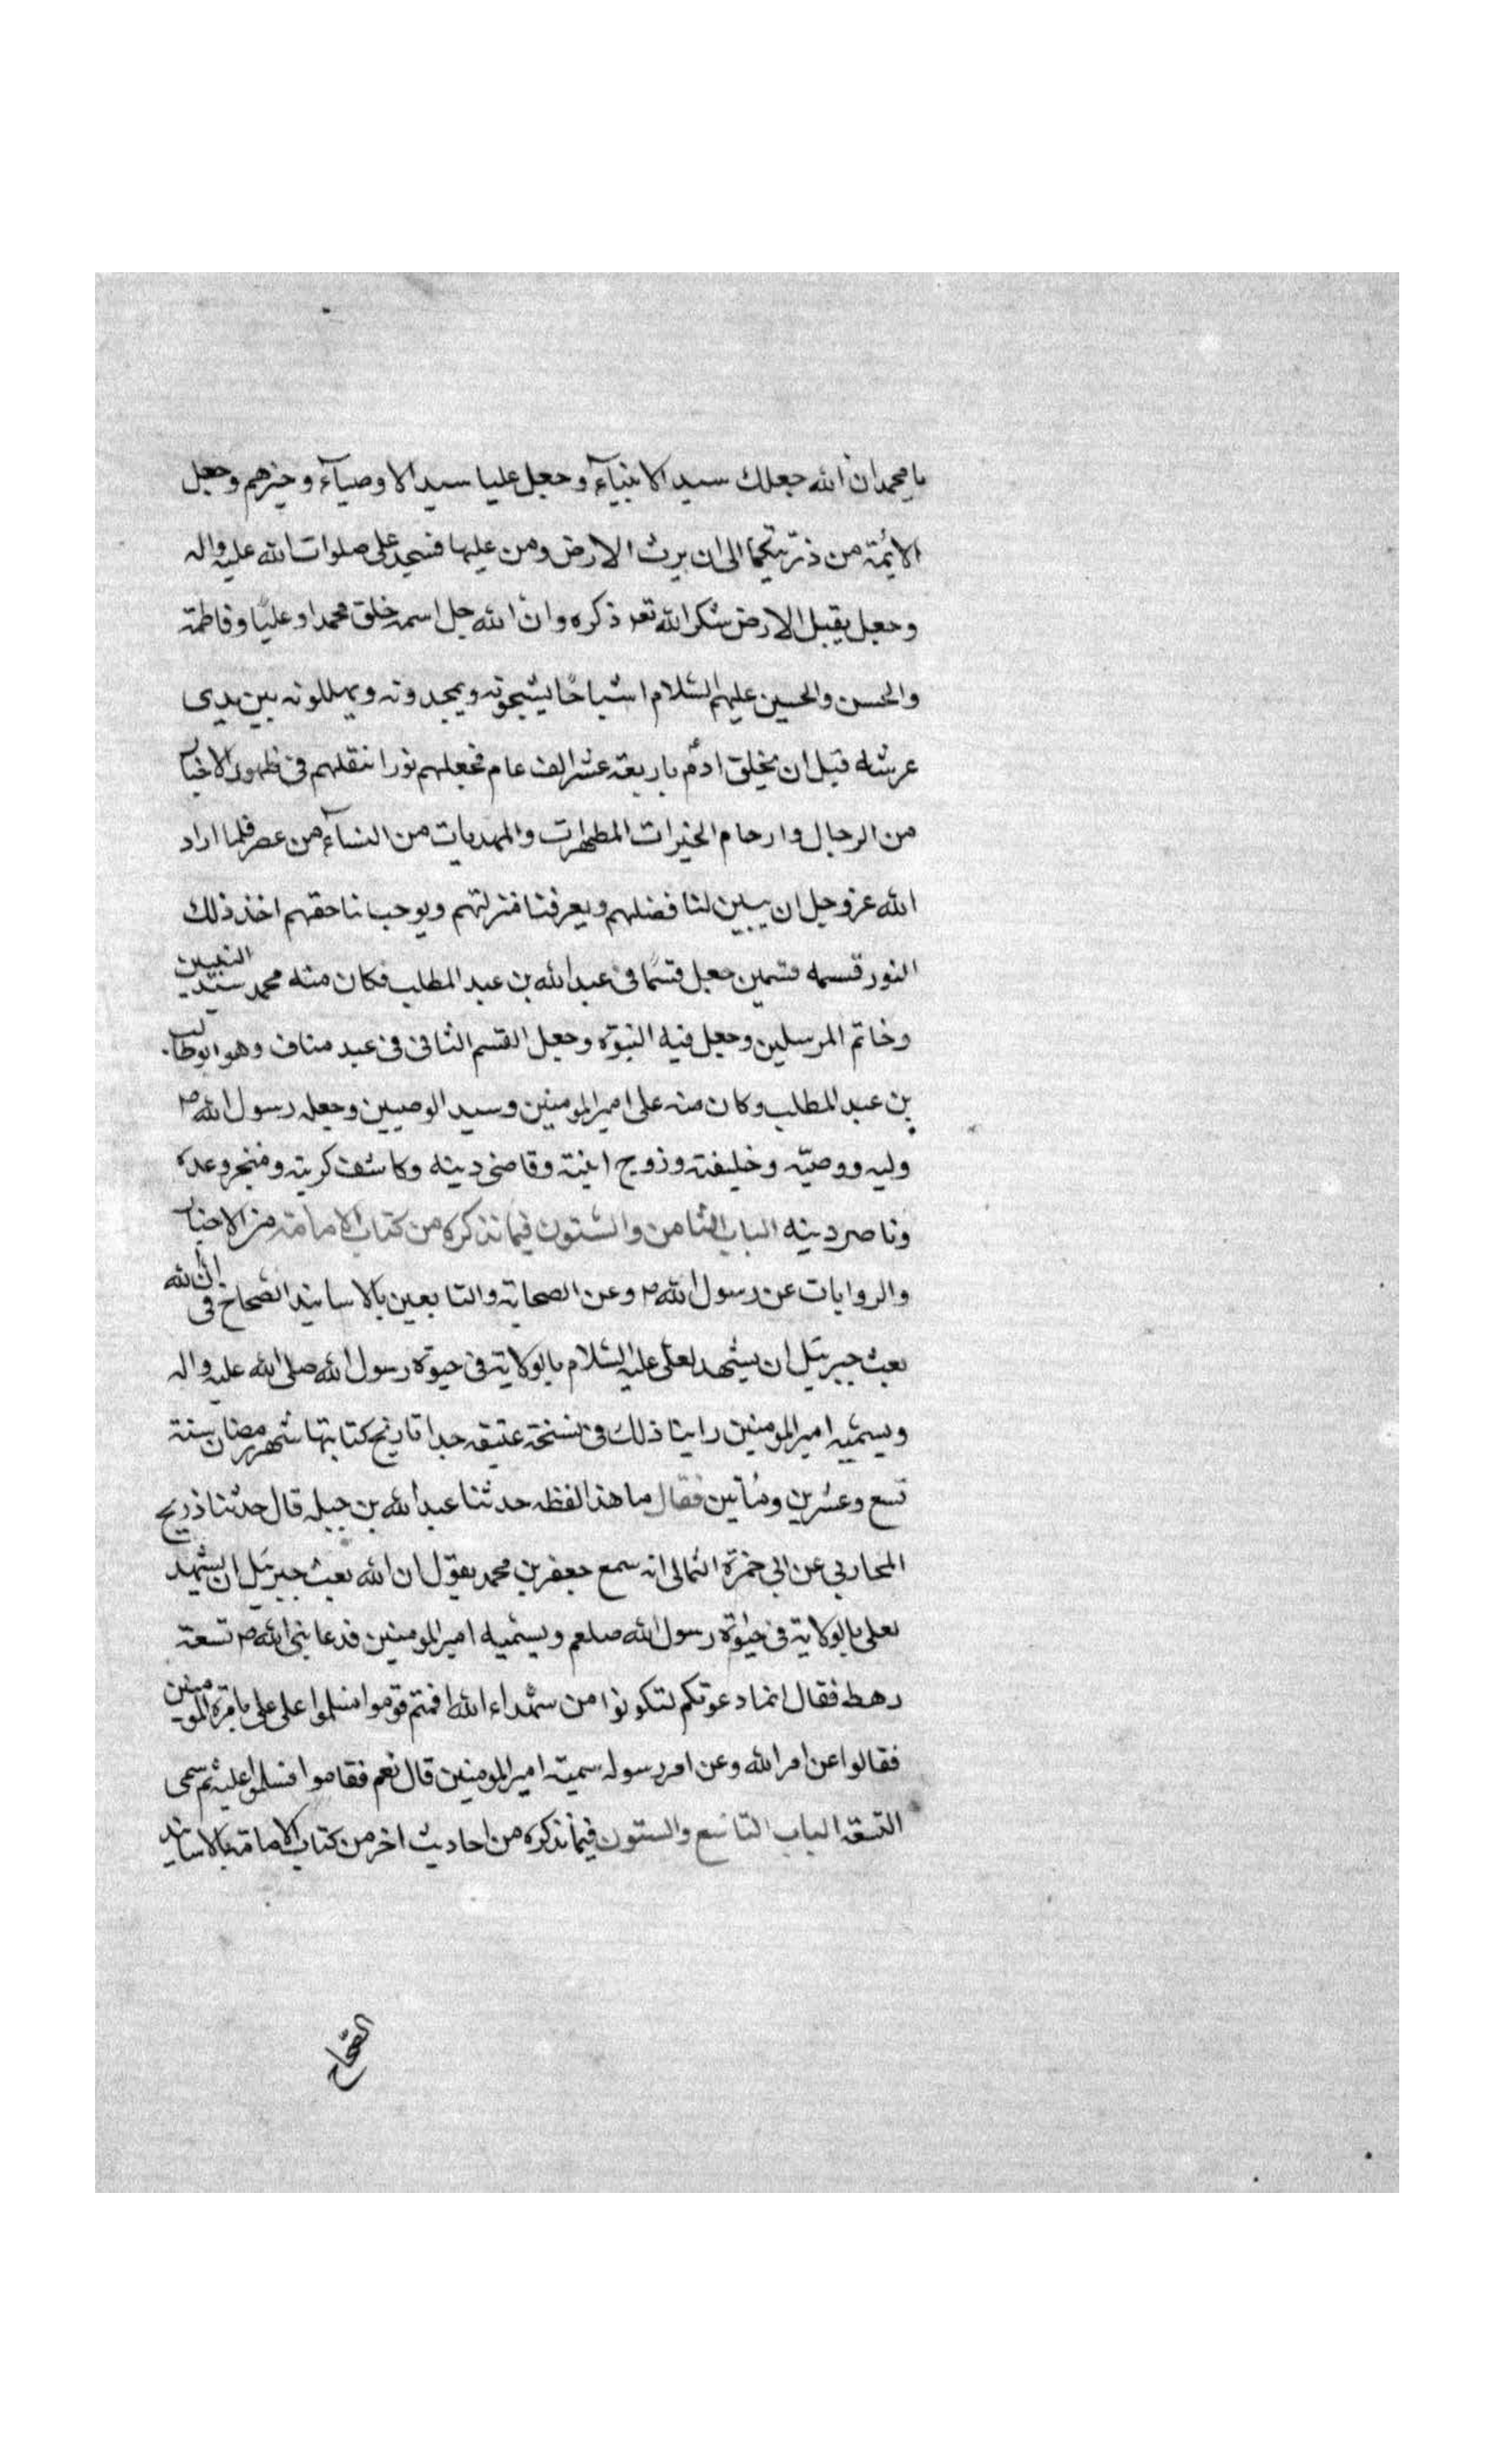 يا محمد ان الله جعلك سيد الانبيآء وجعل عليا سيد الاوصيآء وخيرهم وجعل
الائمة من ذريتكما الى ان يرث الارض ومن عليها فسجد على صلوات الله عليه واله
وجعل يقبل الارض شكرا لله تعه ذكره وان الله جل اسمه خلق محمدا وعليا وفاطمة
والحسن والحسين عليهم السلام اشباحًا يسبحونه ويمجدونه ويهللونه بين يدى
عرشه قبل ان يخلق ادم باربعة عشر الف عام فجعلهم نورا ينقلهم فى ظهور الاخيار
من الرجال وارحام الخيرات المطهرات والمهديات من النسآء من عصر فلما اراد
الله عزوجل ان يبين لنا فضلهم ويعرفنا منزلتهم ويوجب لنا حقهم اخذ ذلك
النور قسمه قسمين جعل قسمًا فى عبد الله بن عبد المطلب فكان منه محمد سيد النبيين
وخاتم المرسلين وجعل فيه النبوة وجعل القسم الثانى فى عبد مناف وهو ابوطالب
بن عبد المطلب وكان منه على امير المومنين وسيد الوصيين وجعله رسول الله ص
وليه ووصيّه وخليفته وزوج ابنته وقاضى دينه وكاشف كربته ومنجز وعده
وناصر دينه الباب الثامن والستون فيما نذكره من كتاب الامامة من الاخبار
والروايات عن رسول الله ص وعن الصحابة والتابعين بالاسانيد الصحاح فى ان الله
بعث جبرئيل ان يشهد لعلى عليه السلام بالولاية فى حيوة رسول الله صلى الله عليه واله
ويسميه امير المومنين راينا ذلك فى نسخة عتيقه جدا تاريخ كتابتها شهر رمضان سنة
تسع وعشرين ومأتين فقال ما هذا لفظه حدثنا عبد الله بن جبله قال حدثنا ذريح
المحاربى عن ابى حمزة الثمالى انه سمع جعفر بن محمد يقول ان الله بعث جبرئيل ان يشهد
لعلى بالولاية فى حيوة رسول الله صلعم ويسميه امير المومنين فدعا بنى الله ص تسعة
رهط فقال انما دعوتكم لتكونوا من شهداء الله اقمتم قوموا فسلموا على على بامرة المومنين
فقالوا عن امر الله وعن امر رسوله سميته امير المومنين قال نعم فقاموا فسلموا عليه ثم سمى
التسعة الباب التاسع والستون فيما نذكره من احاديث اخر من كتاب الامامة بالاسانيد
الصحاح